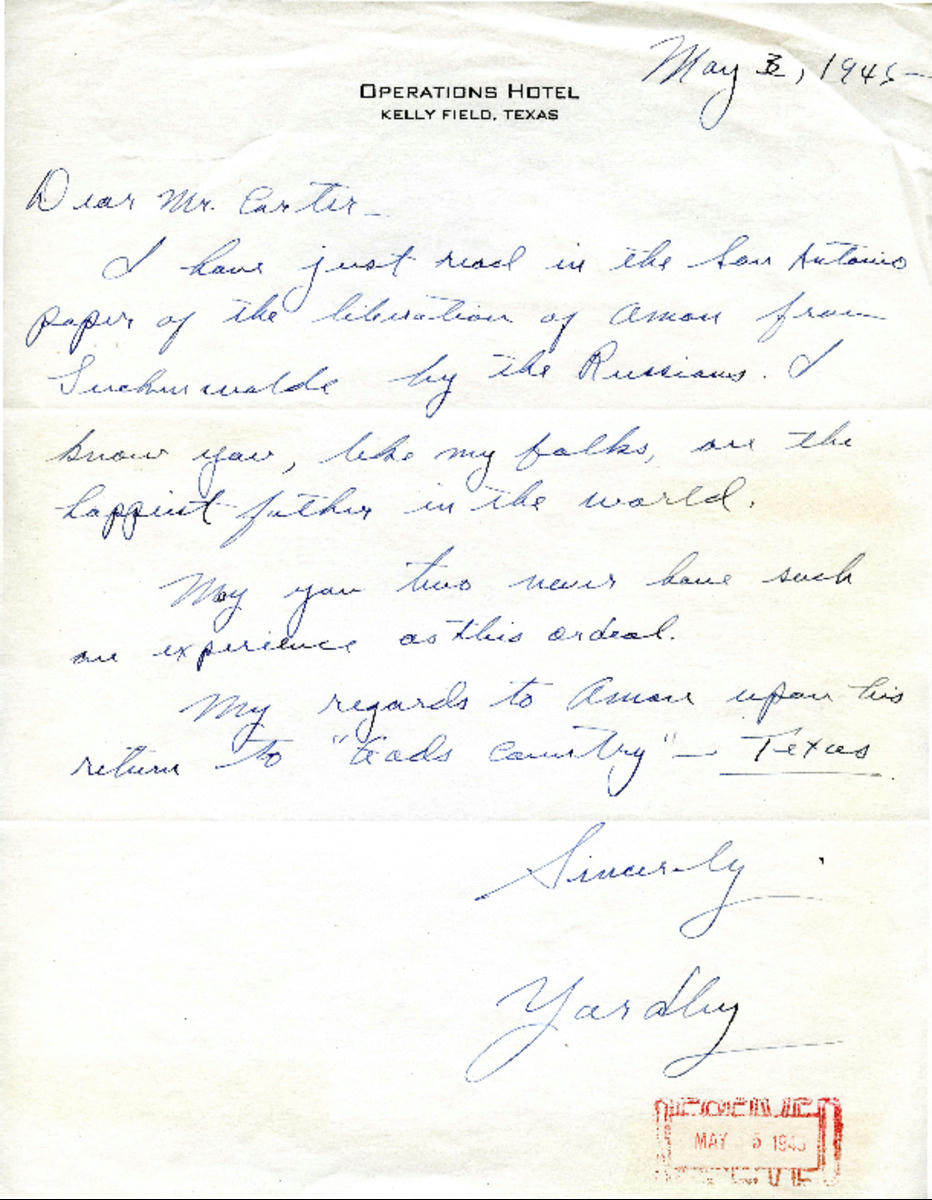 May 3, 1945
OPERATIONS HOTEL
KELLY FIELD, TEXAS
Dear Mr. Carter -
I have just read in the San Antonio
paper of the liberation of Amon from
Luckenwalde by the Russians. I
know you, like my folks, are the
happiest father in the world.
May you two never have such
an experience as this ordeal.
My regards to Amon upon his
return to "Gods country" - Texas
Sincerly
Yardley
RECEIVED
MAY 5 1945